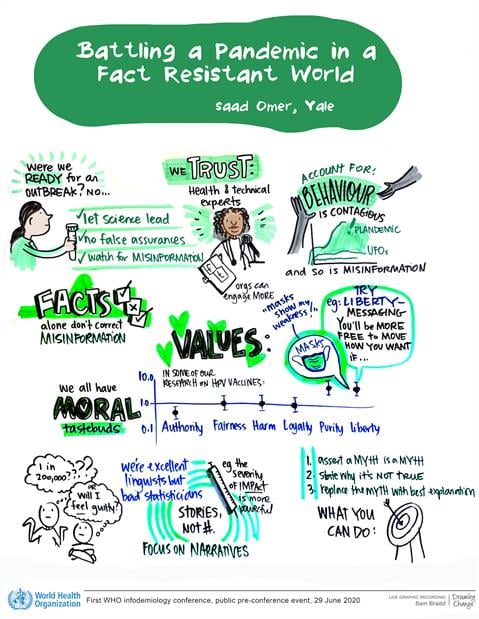 Battling a Pandemic in a
Fact Resistant World
Saad Omer, Yale
Were we
READY for an
OUTBREAK? NO...
let science lead
no false assurances
watch for MISINFORMATION
WE TRUST:
Health & technical
experts
orgs can
engage MORE
ACCOUNT FOR:
BEHAVIOUR
IS CONTAGIOUS
PLANDEMIC
UFOs
and so is MISINFORMATION
FACTS
alone don't correct
MISINFORMATION
VALUES:
"masks
show my
weakness!"
MASKS
TRY
eg: LIBERTY-
MESSAGING
You'll be MORE
FREE to MOVE
HOW YOU WANT
IF...
we all have
MORAL
tastebuds
IN SOME OF OUR
RESEARCH ON HPV VACCINES:
10.0
1.0
0.1
Authority Fairness Harm Loyalty Purity Liberty
1 in
200,000??
or
Will I
feel guilty?
we're excellent
linguists but
bad statisticians
eg the
severity
of IMPACT
is more
powerful
STORIES,
NOT #.
FOCUS ON NARRATIVES
1. assert a MYTH is a MYTH
2. state why IT'S NOT TRUE
3. replace the MYTH with best explanation
WHAT YOU
CAN DO:
World Health
Organization
First WHO infodemiology conference, public pre-conference event, 29 June 2020
LIVE GRAPHIC RECORDING
Sam Bradd
Drawing
Change